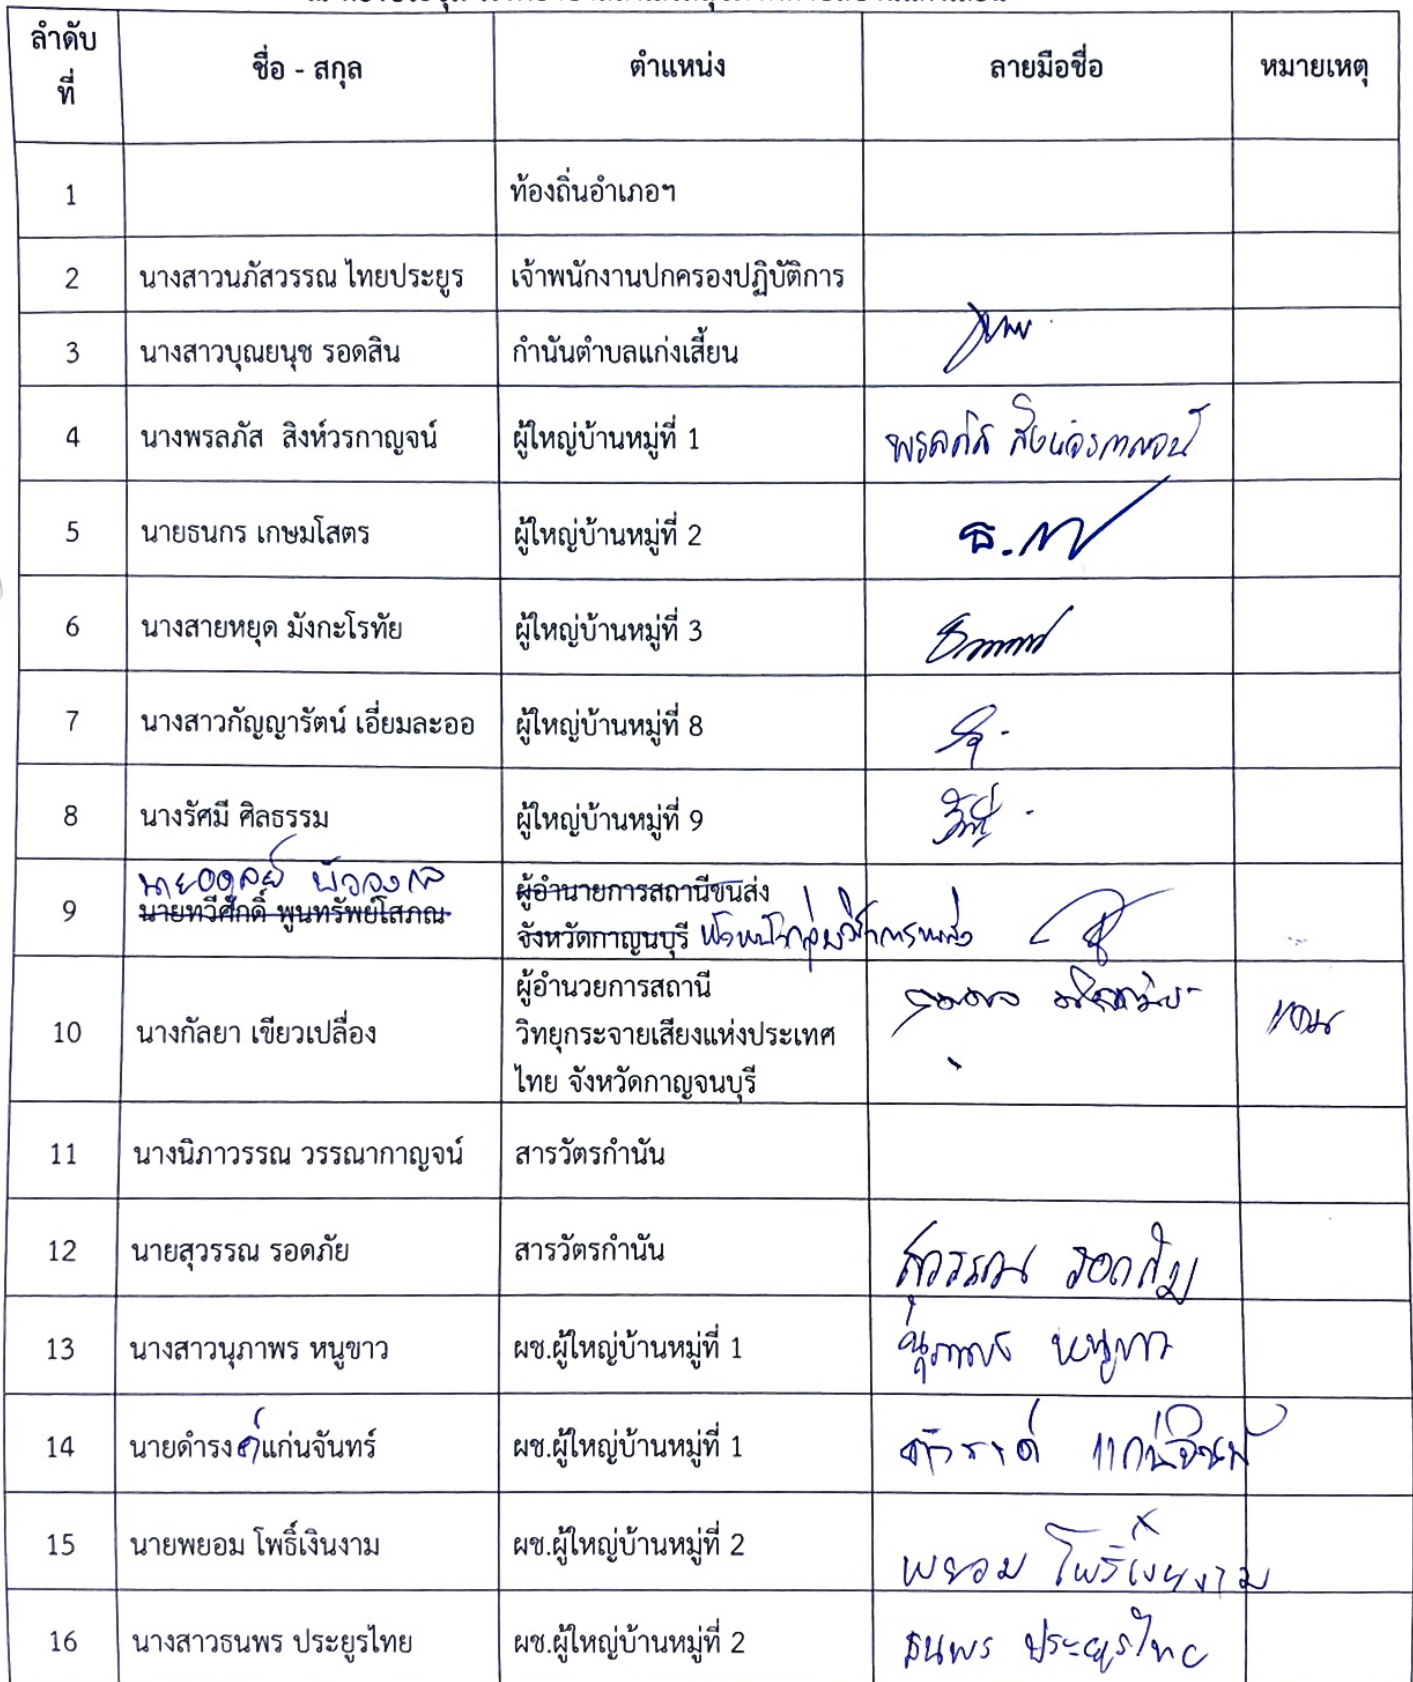 ลำดับ
ที่
ชื่อ - สกุล
ตำแหน่ง
ลายมือชื่อ
หมายเหตุ
1
ท้องถิ่นอำเภอฯ
2
นางสาวนภัสวรรณ ไทยประยูร
เจ้าพนักงานปกครองปฏิบัติการ
3
นางสาวบุณยนุช รอดสิน
กำนันตำบลแก่งเสี้ยน
4
นางพรลภัส สิงห์วรกาญจน์
ผู้ใหญ่บ้านหมู่ที่ 1
พรลภัส สิงห์วรกาญจน์
5
นายธนกร เกษมโสตร
ผู้ใหญ่บ้านหมู่ที่ 2
6
นางสายหยุด มังกะโรทัย
ผู้ใหญ่บ้านหมู่ที่ 3
7
นางสาวกัญญารัตน์ เอี่ยมละออ
ผู้ใหญ่บ้านหมู่ที่ 8
8
นางรัศมี ศิลธรรม
ผู้ใหญ่บ้านหมู่ที่ 9
9
นายอดุลย์
นายทวีศักดิ์ พูนทรัพย์โสภณ
ผู้อำนายการสถานีขนส่ง
จังหวัดกาญนบุรี หัวหน้ากลุ่มวิชาการขนส่ง
10
นางกัลยา เขียวเปลื่อง
ผู้อำนวยการสถานี
วิทยุกระจายเสียงแห่งประเทศ
ไทย จังหวัดกาญจนบุรี
แทน
11
นางนิภาวรรณ วรรณากาญจน์
สารวัตรกำนัน
12
นายสุวรรณ รอดภัย
สารวัตรกำนัน
สุวรรณ รอดภัย
13
นางสาวนุภาพร หนูขาว
ผช.ผู้ใหญ่บ้านหมู่ที่ 1
นุภาพร หนูขาว
14
นายดำรงค์แก่นจันทร์
ผช.ผู้ใหญ่บ้านหมู่ที่ 1
ดำรงค์ แก่นจันทร์
15
นายพยอม โพธิ์เงินงาม
ผช.ผู้ใหญ่บ้านหมู่ที่ 2
พยอม โพธิ์เงินงาม
16
นางสาวธนพร ประยูรไทย
ผช.ผู้ใหญ่บ้านหมู่ที่ 2
ธนพร ประยูรไทย